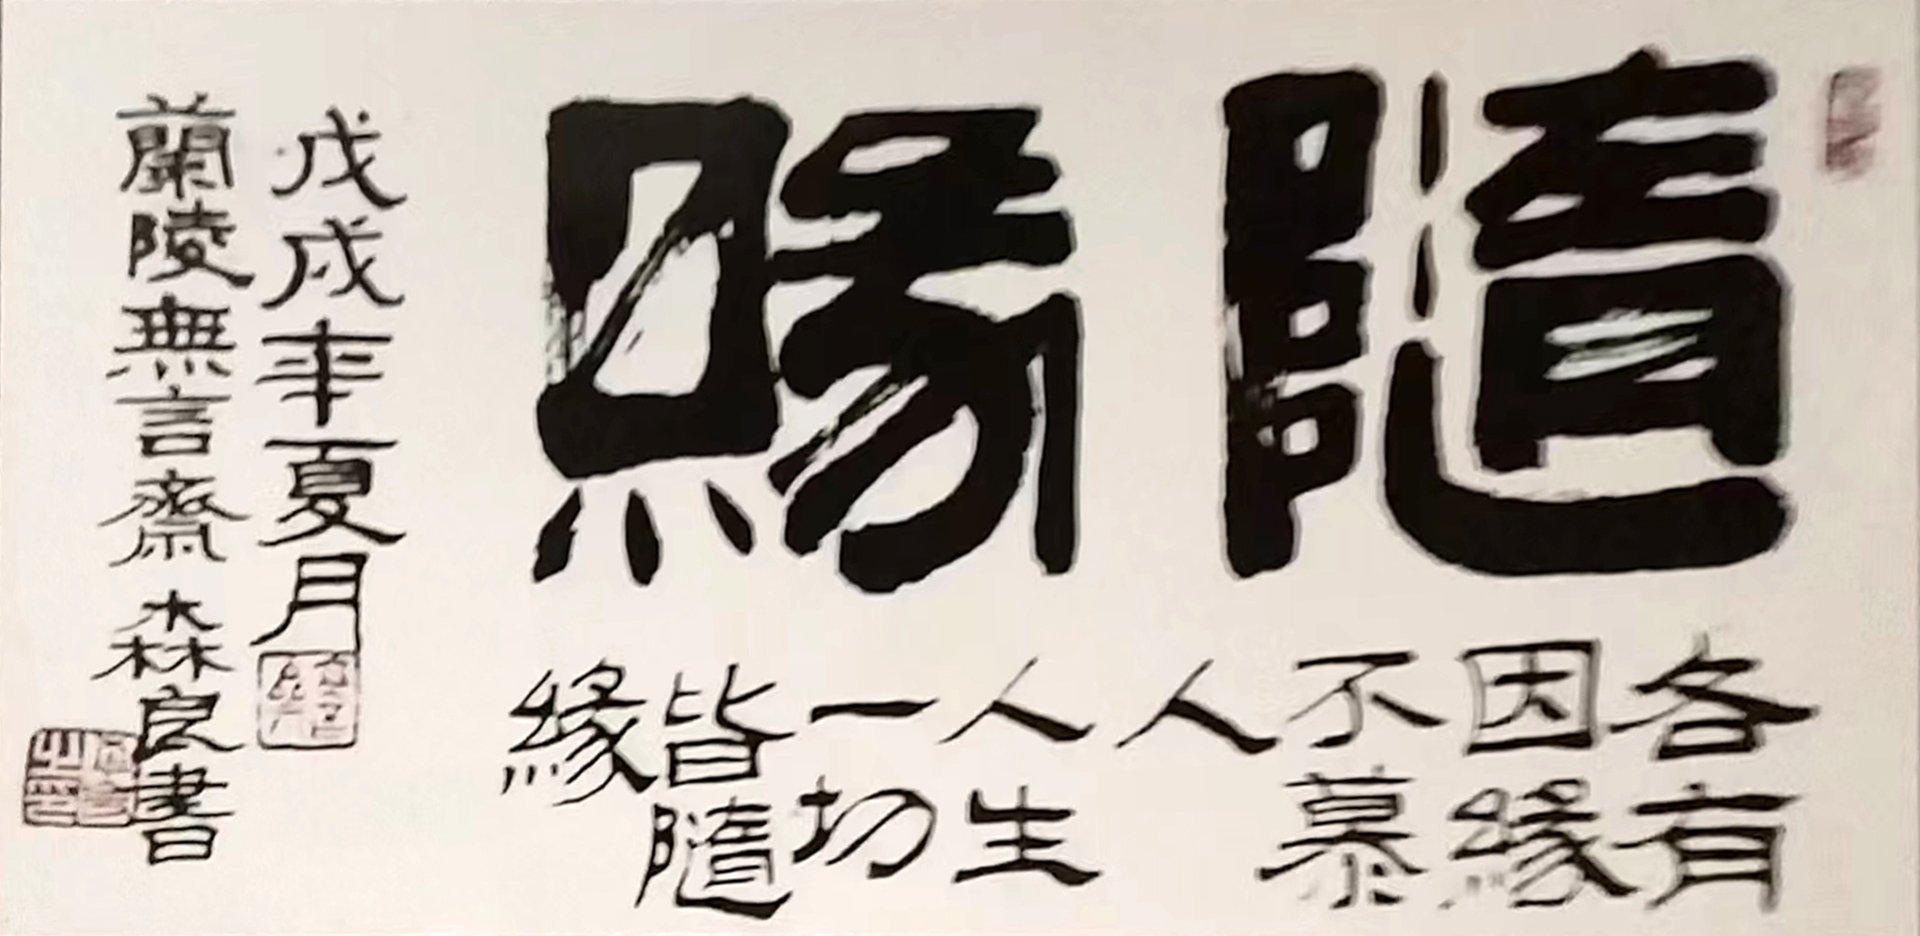 隨緣
各有
因緣
不慕
人
人生
一切
皆隨
緣
戊戌年夏月
蘭陵無言齋森良書